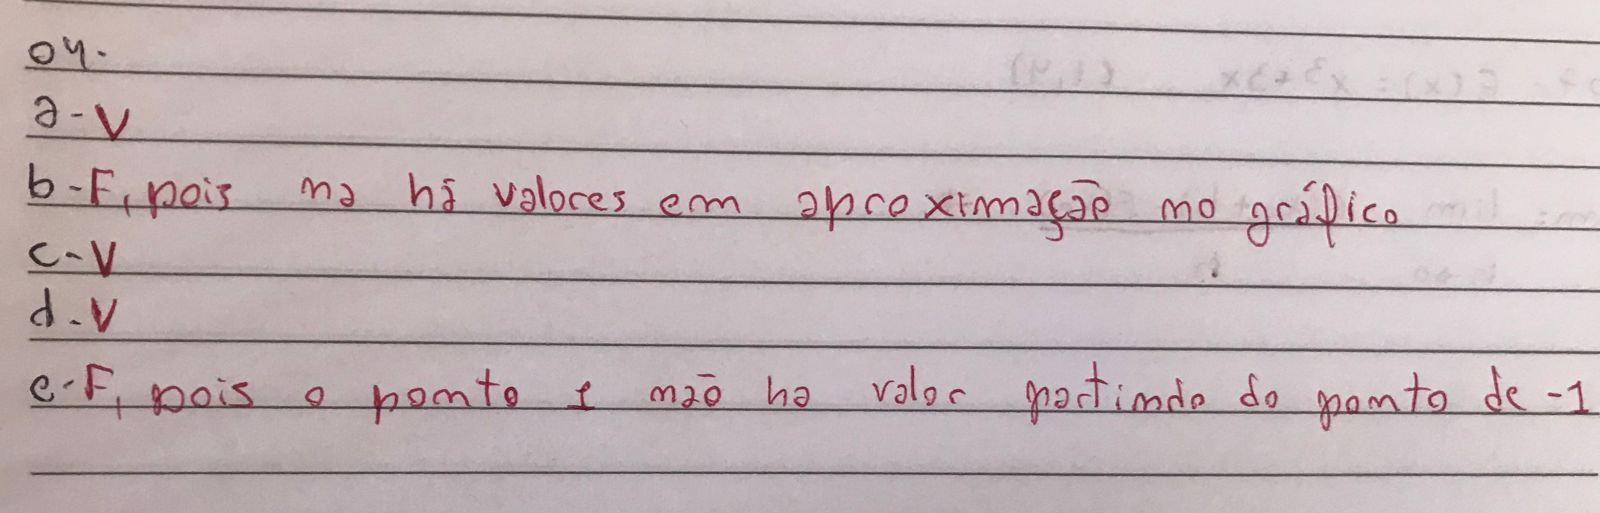 04.
a-V
b-F, pois na há valores em aproximação no gráfico
c-V
d-V
e-F, pois o ponto 1 não ha valor partindo do ponto de -1